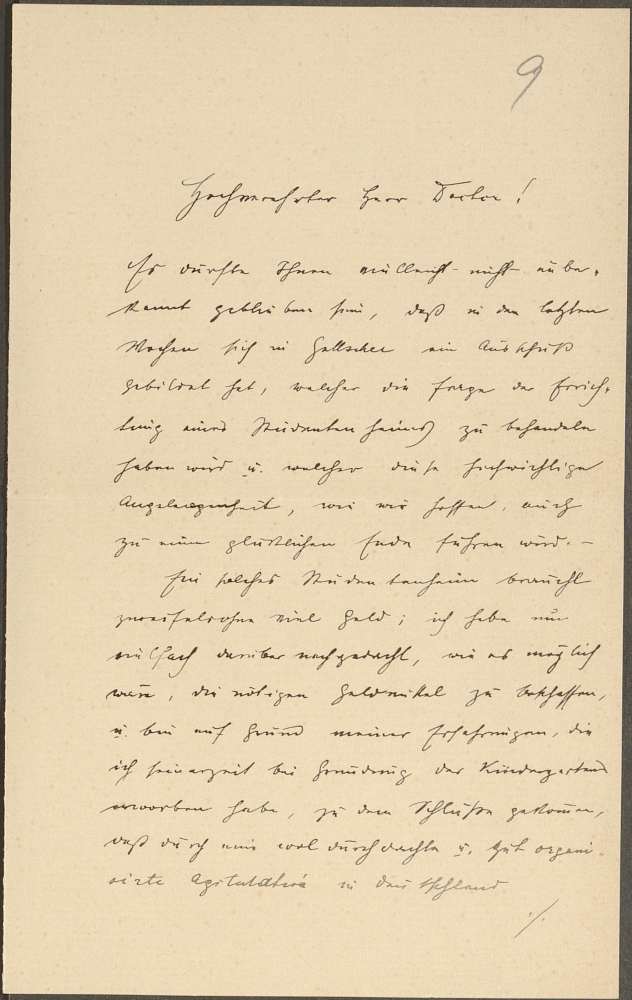 9
Hochverehrter Herr Doctor!
Es dürfte Ihnen vielleicht nicht unbe-
kannt geblieben sein, daß in den letzten
Wochen sich in Gottschee ein Ausschuß
gebildet hat, welcher die Frage der Errich-
tung eines Studentenheimes zu behandeln
haben wird u. welcher diese hochwichtige
Angelegenheit, wie wir hoffen, auch
zu einem glücklichen Ende führen wird. –
Ein solches Studentenheim braucht
zweifelsohne viel Geld; ich habe nun
vielfach darüber nachgedacht, wie es möglich
wäre, die nötigen Geldmittel zu beschaffen,
u. bin auf Grund meiner Erfahrungen, die
ich seinerzeit bei Gründung des Kindergartens
erworben habe, zu dem Schluße gekommen,
daß durch eine wol durchdachte u. gut organi-
sirte Agitation in Deutschland
./.